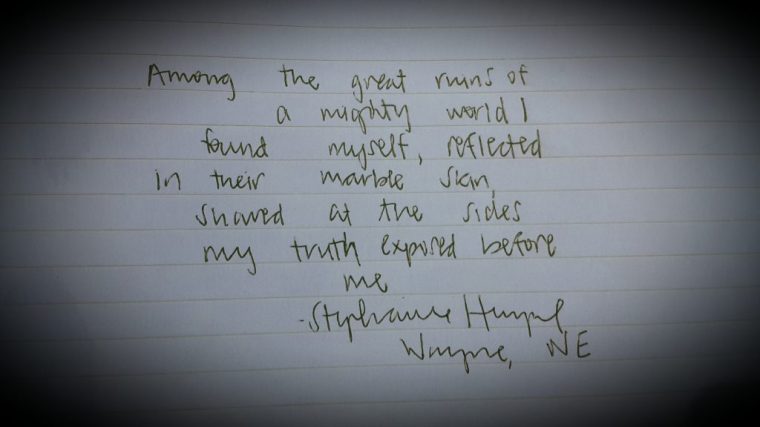 Among the great ruins of
a mighty world I
found myself, reflected
in their marble skin,
at the sides
my truth exposed before
me
-Stephanie
Wayne, NE